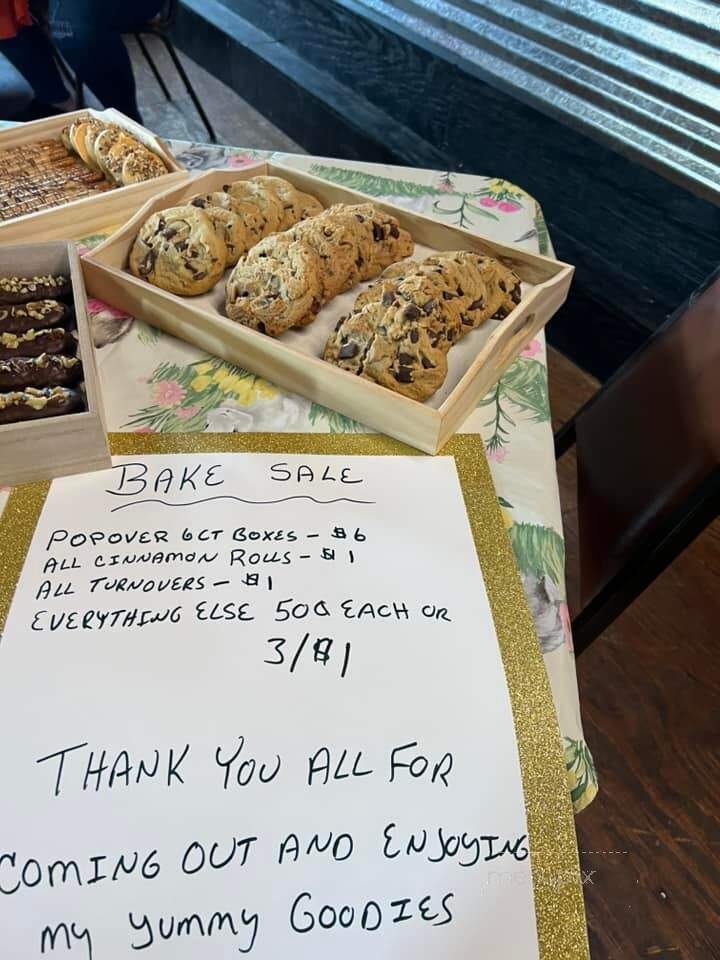 BAKE SALE
POPOVER 6CT BOXES - $6
ALL CINNAMON ROLLS - $1
ALL TURNOVERS - $1
EVERYTHING ELSE 50¢ EACH OR
3/$1
THANK YOU ALL FOR
COMING OUT AND ENJOYING
MY YUMMY GOODIES